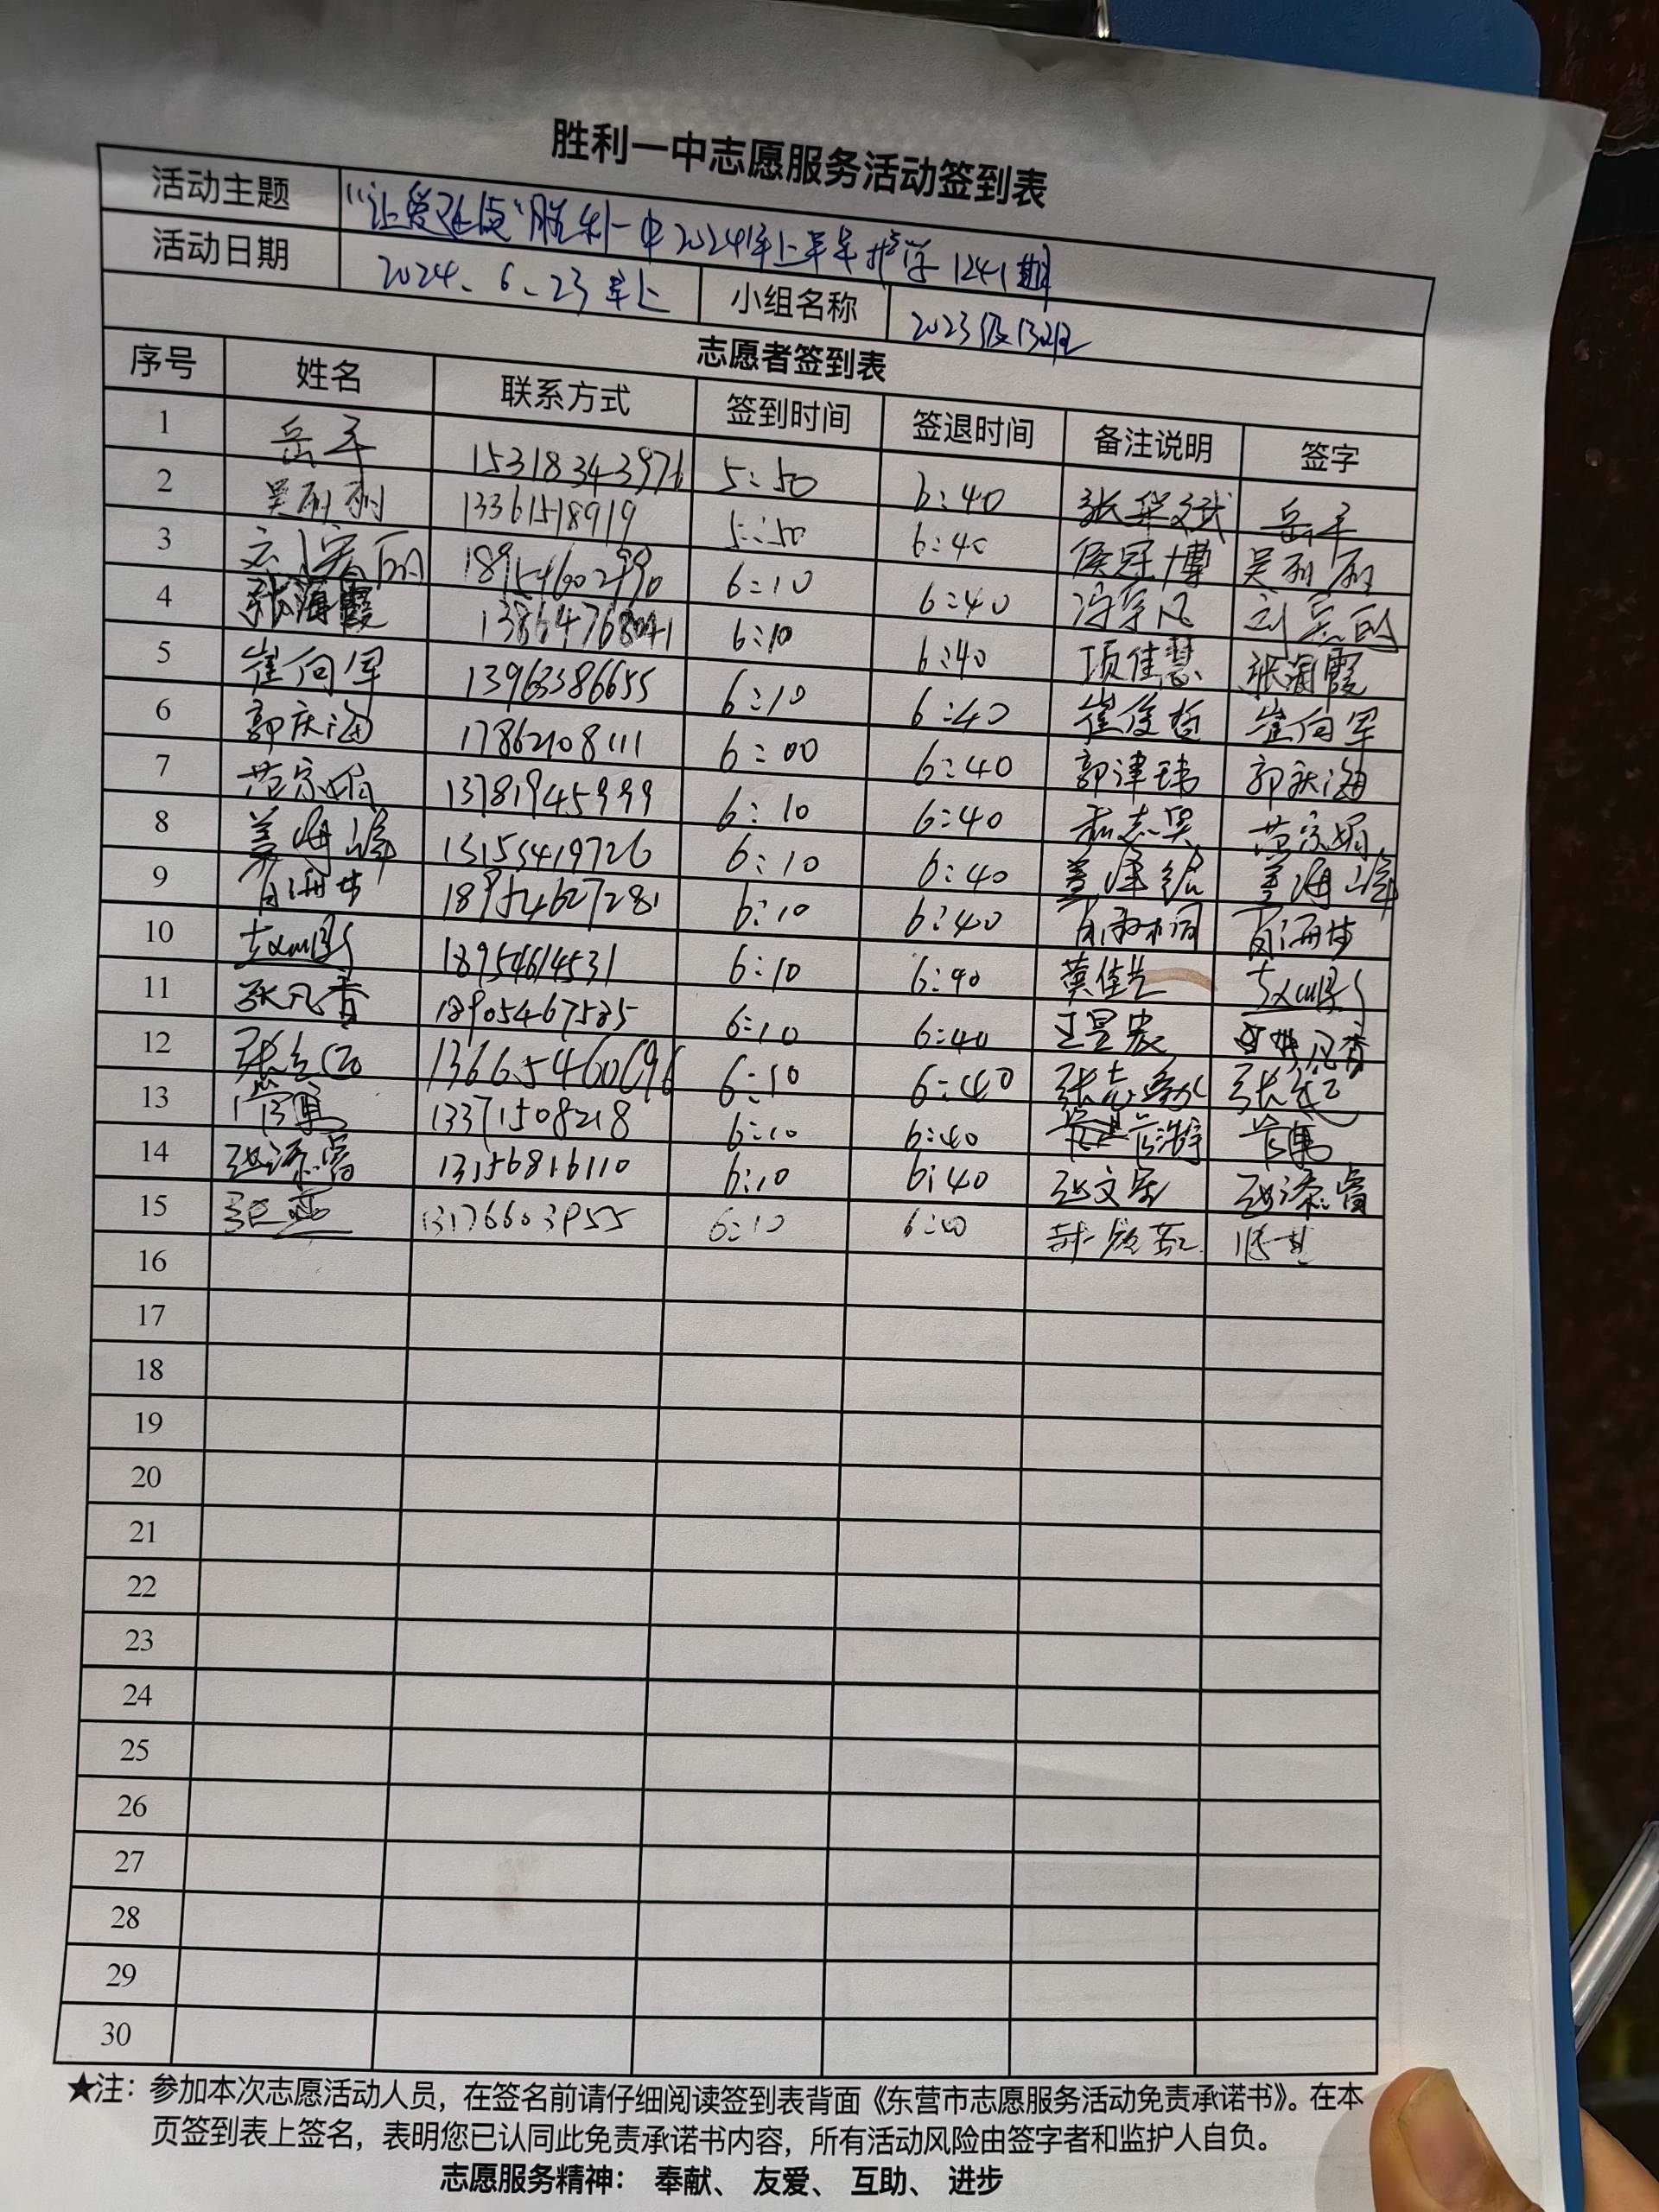 胜利一中志愿服务活动签到表
活动主题 "让爱延伸"胜利一中2024年上半年护学1241期
活动日期 2024、6、23 早上 小组名称 2023级13班
志愿者签到表
序号 姓名 联系方式 签到时间 签退时间 备注说明 签字
1 岳军 15318343976 5:50 6:40 张华文斌 岳军
2 吴丽丽 13361518919 5:50 6:40 侯冠博 吴丽丽
3 18954602990 6:10 6:40 冯宇凡
4 张海霞 6:10 6:40 项佳慧 张海霞
5 崔向军 13963386655 6:10 6:40 崔俊哲 崔向军
6 郭庆海 17862108111 6:00 6:40 郭津玮 郭庆海
7 范宗娟 13781945999 6:10 6:40 范宗娟
8 姜海峰 13153419726 6:10 6:40 姜海峰
9 18954627281 6:10 6:40
10 18954614531 6:10 6:40
11 张凡香 18905467535 6:10 6:40 王昱宸
12 13665460696 6:10 6:40
13 13371508218 6:10 6:40
14 13156816110 6:10 6:40
15 13176603955 6:10 6:40
16
17
18
19
20
21
22
23
24
25
26
27
28
29
30
★注：参加本次志愿活动人员，在签名前请仔细阅读签到表背面《东营市志愿服务活动免责承诺书》。在本
页签到表上签名，表明您已认同此免责承诺书内容，所有活动风险由签字者和监护人自负。
志愿服务精神： 奉献、 友爱、 互助、 进步